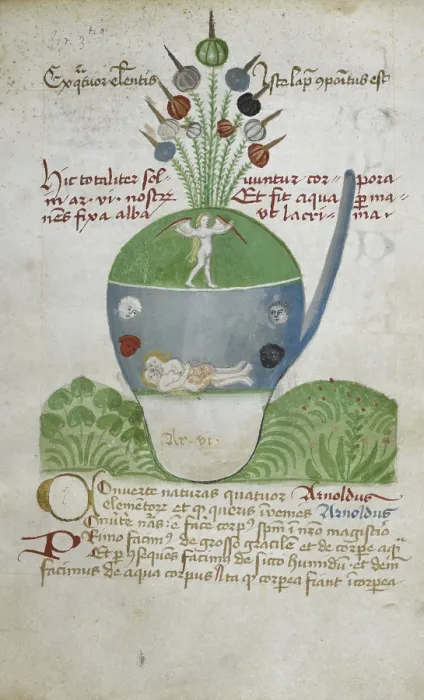 Exqͣtuor elēntis Iste lap̄ ꝯpoitus est
Hic totaliter sol- uuntur cor= pora
in ar· vi· nostrē Et fit aqua ꝑ ma=
nēs fixa alba vt lacri= ma·
Ar· vi·
Conuerte naturas quatuor Arnoldus
elemētorē et qꝫ queris inuenies Arnoldus
nās ·i· face corpꝰ spm̄ ī nr̄o magistio
Primo facimꝰ de grosso gracilē et de corpe aqͣ
Et ꝑ ꝯseqūēs facimꝰ de sicco humidū et dein
facimus de aqua corpus Ita qꝫ corpea fiant īcorpea